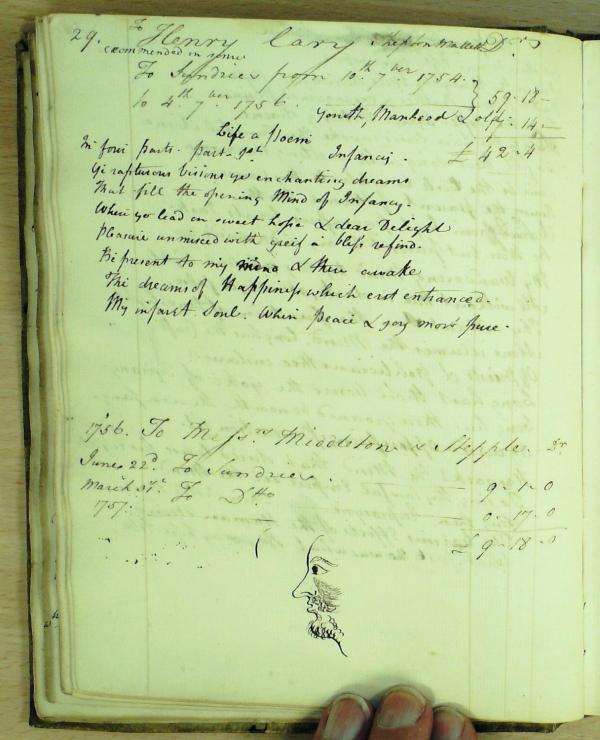 29. To Henry Cary Shepton Mallett Dr
To Sundries from 10th 7ber 1754. } 59-18-
to 4th 7ber 1756. 14-
Youth, Manhood & old
Life a Poem
In four parts. part 1st Infancy. £ 42-4
Ye rapturous Visions ye enchanting dreams
That fill the opening Mind of Infancy.
When ye lead on sweet hope & dear Delight
Pleasure unmixed with greif a bless refind.
Be present to my mind & there awake
The dreams of Happiness which erst entranced.
My infant Soul. When Peace & joy more pure.
1756. To Messrs Middleton & Stepples Dr
June 22d To Sundries. — 9-1-0
March 31st To Dtto — 0-17-0
1757. £ 9-18-0